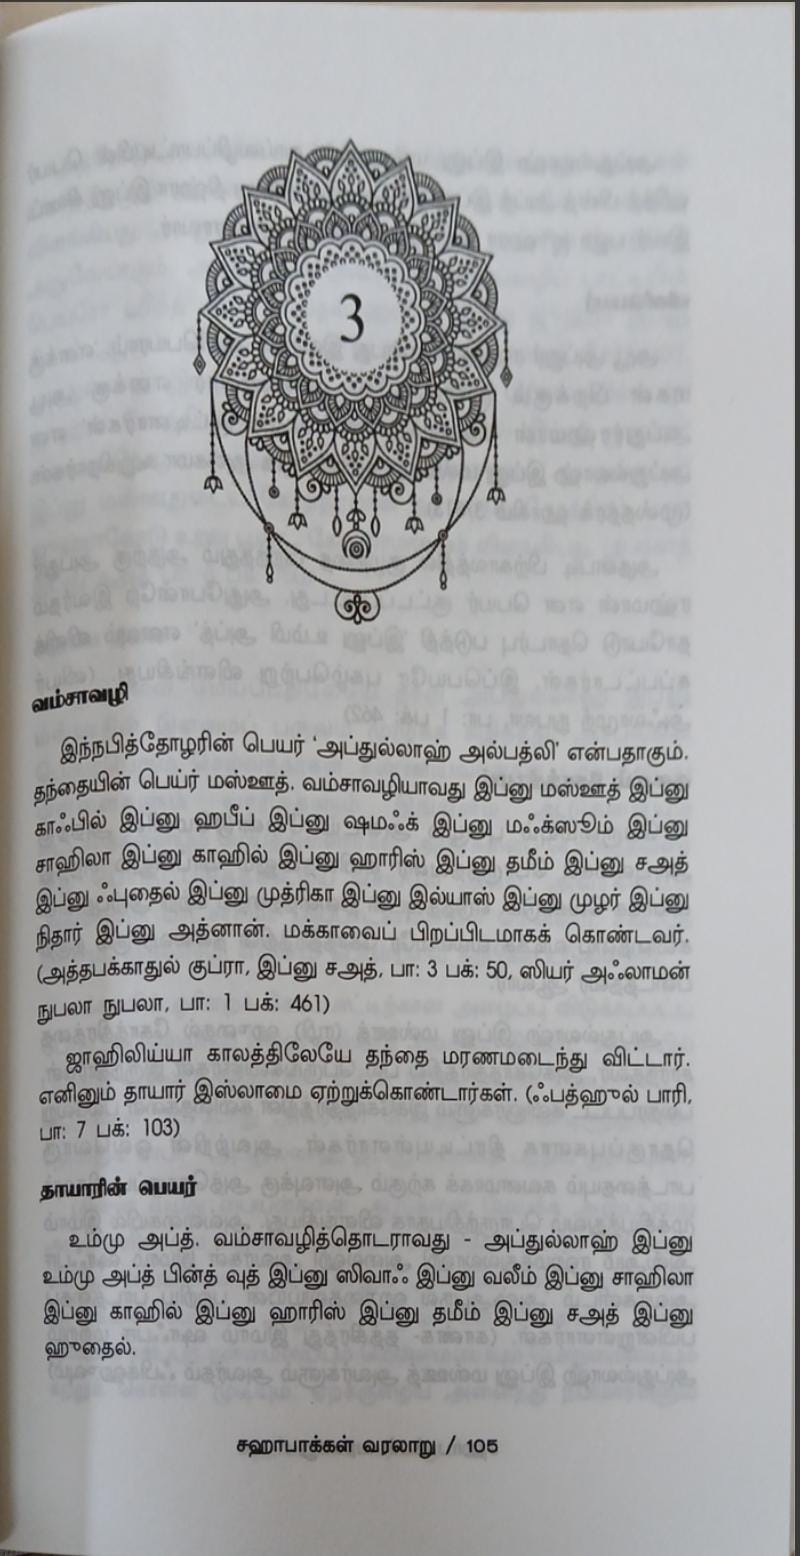 3
வம்சாவழி
இந்நபித்தோழரின் பெயர் ‘அப்துல்லாஹ் அல்பத்லி’ என்பதாகும்.
தந்தையின் பெய்ர் மஸ்ஊத். வம்சாவழியாவது இப்னு மஸ்ஊத் இப்னு
காஃபில் இப்னு ஹபீப் இப்னு ஷமஃக் இப்னு மஃக்ஸூம் இப்னு
சாஹிலா இப்னு காஹில் இப்னு ஹாரிஸ் இப்னு தமீம் இப்னு சஅத்
இப்னு ஃபுதைல் இப்னு முத்ரிகா இப்னு இல்யாஸ் இப்னு முழர் இப்னு
நிதார் இப்னு அத்னான். மக்காவைப் பிறப்பிடமாகக் கொண்டவர்.
(அத்தபக்காதுல் குப்ரா, இப்னு சஅத், பா: 3 பக்: 50, ஸியர் அஃலாமன்
நுபலா நுபலா, பா: 1 பக்: 461)
ஜாஹிலிய்யா காலத்திலேயே தந்தை மரணமடைந்து விட்டார்.
எனினும் தாயார் இஸ்லாமை ஏற்றுக்கொண்டார்கள். (ஃபத்ஹுல் பாரி,
பா: 7 பக்: 103)
தாயாரின் பெயர்
உம்மு அப்த். வம்சாவழித்தொடராவது - அப்துல்லாஹ் இப்னு
உம்மு அப்த் பின்த் வுத் இப்னு ஸிவாஃ இப்னு வலீம் இப்னு சாஹிலா
இப்னு காஹில் இப்னு ஹாரிஸ் இப்னு தமீம் இப்னு சஅத் இப்னு
ஹுதைல்.
சஹாபாக்கள் வரலாறு / 105